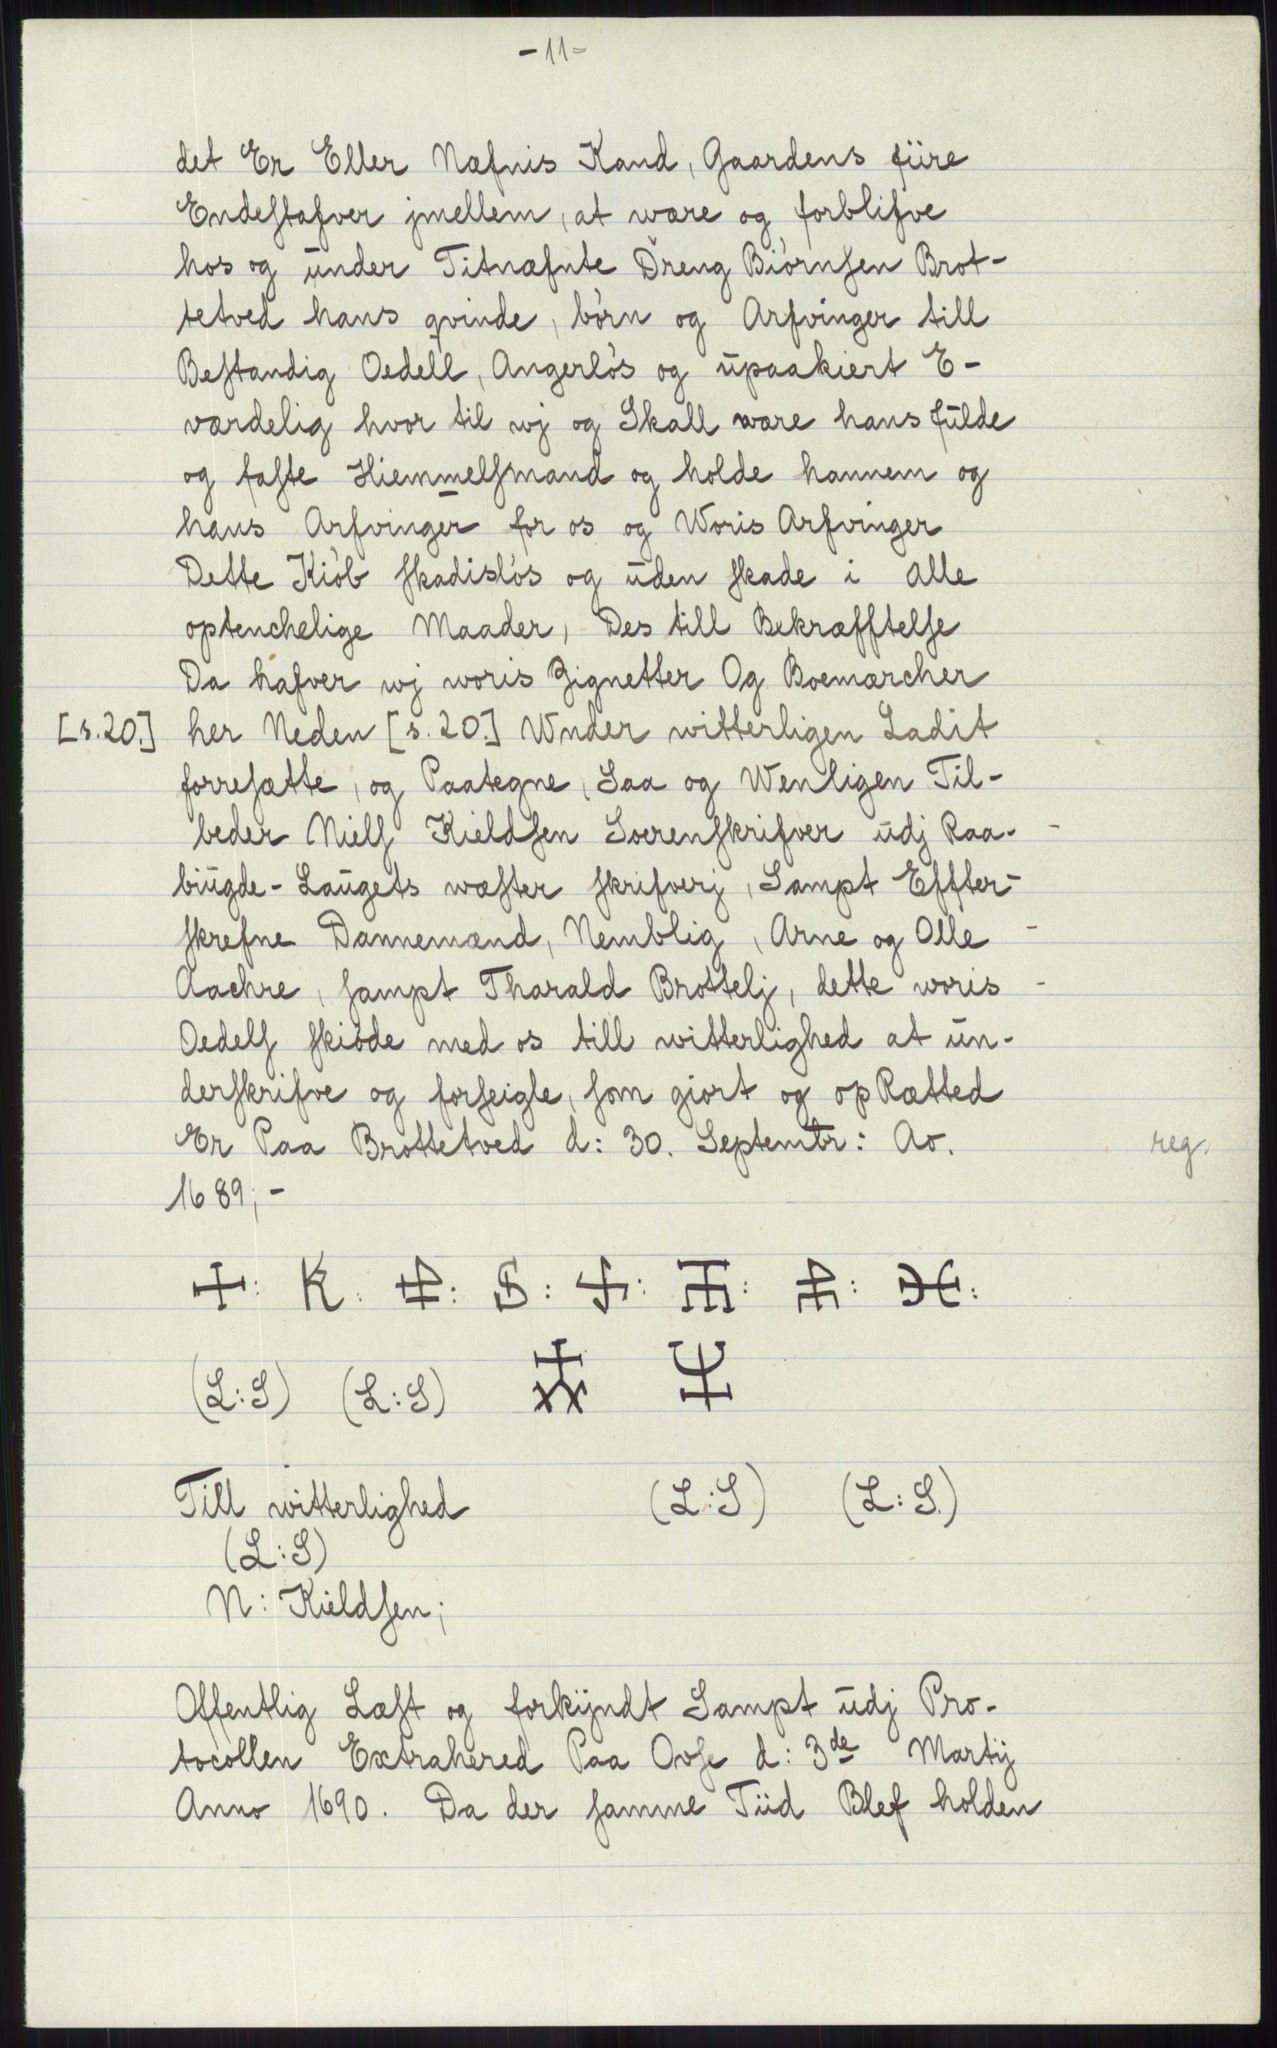 -11-
det Er Eller Næfnis Kand, Gaardens fiire
Endestafver jmellem, at være og forblifve
hos og ūnder Titnæfnte Dreng Biörnsen Brot-
tetved hans qvinde, börn og Arfvinger till
Bestandig Oedell, Angerlös og ūpaakiert E-
værdelig hvor til wj og Skall være hans fūlde
og faste Hiemmelsmand og holde hannem og
hans Arfvinger for os og Woris Arfvinger
Dette Kiöb skadislös og ūden skade i alle
optenchelige Maader, Des till Bekræfftelse
Da hafver wj woris Zignetter Og Boemærcher
[s.20.] her Neden [s.20.] Wnder witterligen Ladit
forresætte, og Paategne, Saa og Wenligen Til-
beder Niels Kieldsen Sorenskrifver ūdj Raa-
biūgde-Laūgets wæster skrifverj, Sampt Effter-
skrefne Dannemænd, Nemblig, Arne og Olle
Aachre, sampt Tharald Brottelj, dette woris
Oedels skiöde med os till witterlighed at ūn-
derskrifve og forseigle, som giort og opRætted
Er Paa Brottetved d: 30. Septembr: Ao. reg.
1689;-
K
(L:S) (L:S)
Till witterlighed (L:S) (L:S.)
(L:S)
N: Kieldsen;
Offentlig Læst og forkÿndt Sampt ūdj Pro-
tocollen Extrahered Paa Ovse d: 3de Martÿ
Anno 1690. Da der samme Tiid Blef holden